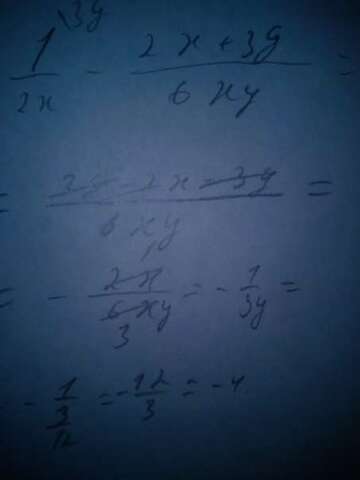 1 \3y / 2x - 2x+3y / 6xy =
= 3y-2x-3y / 6xy =
= - 2x / 6xy = - 1 / 3y =
3
- 1 / 3 / 12 = - 12 / 3 = - 4